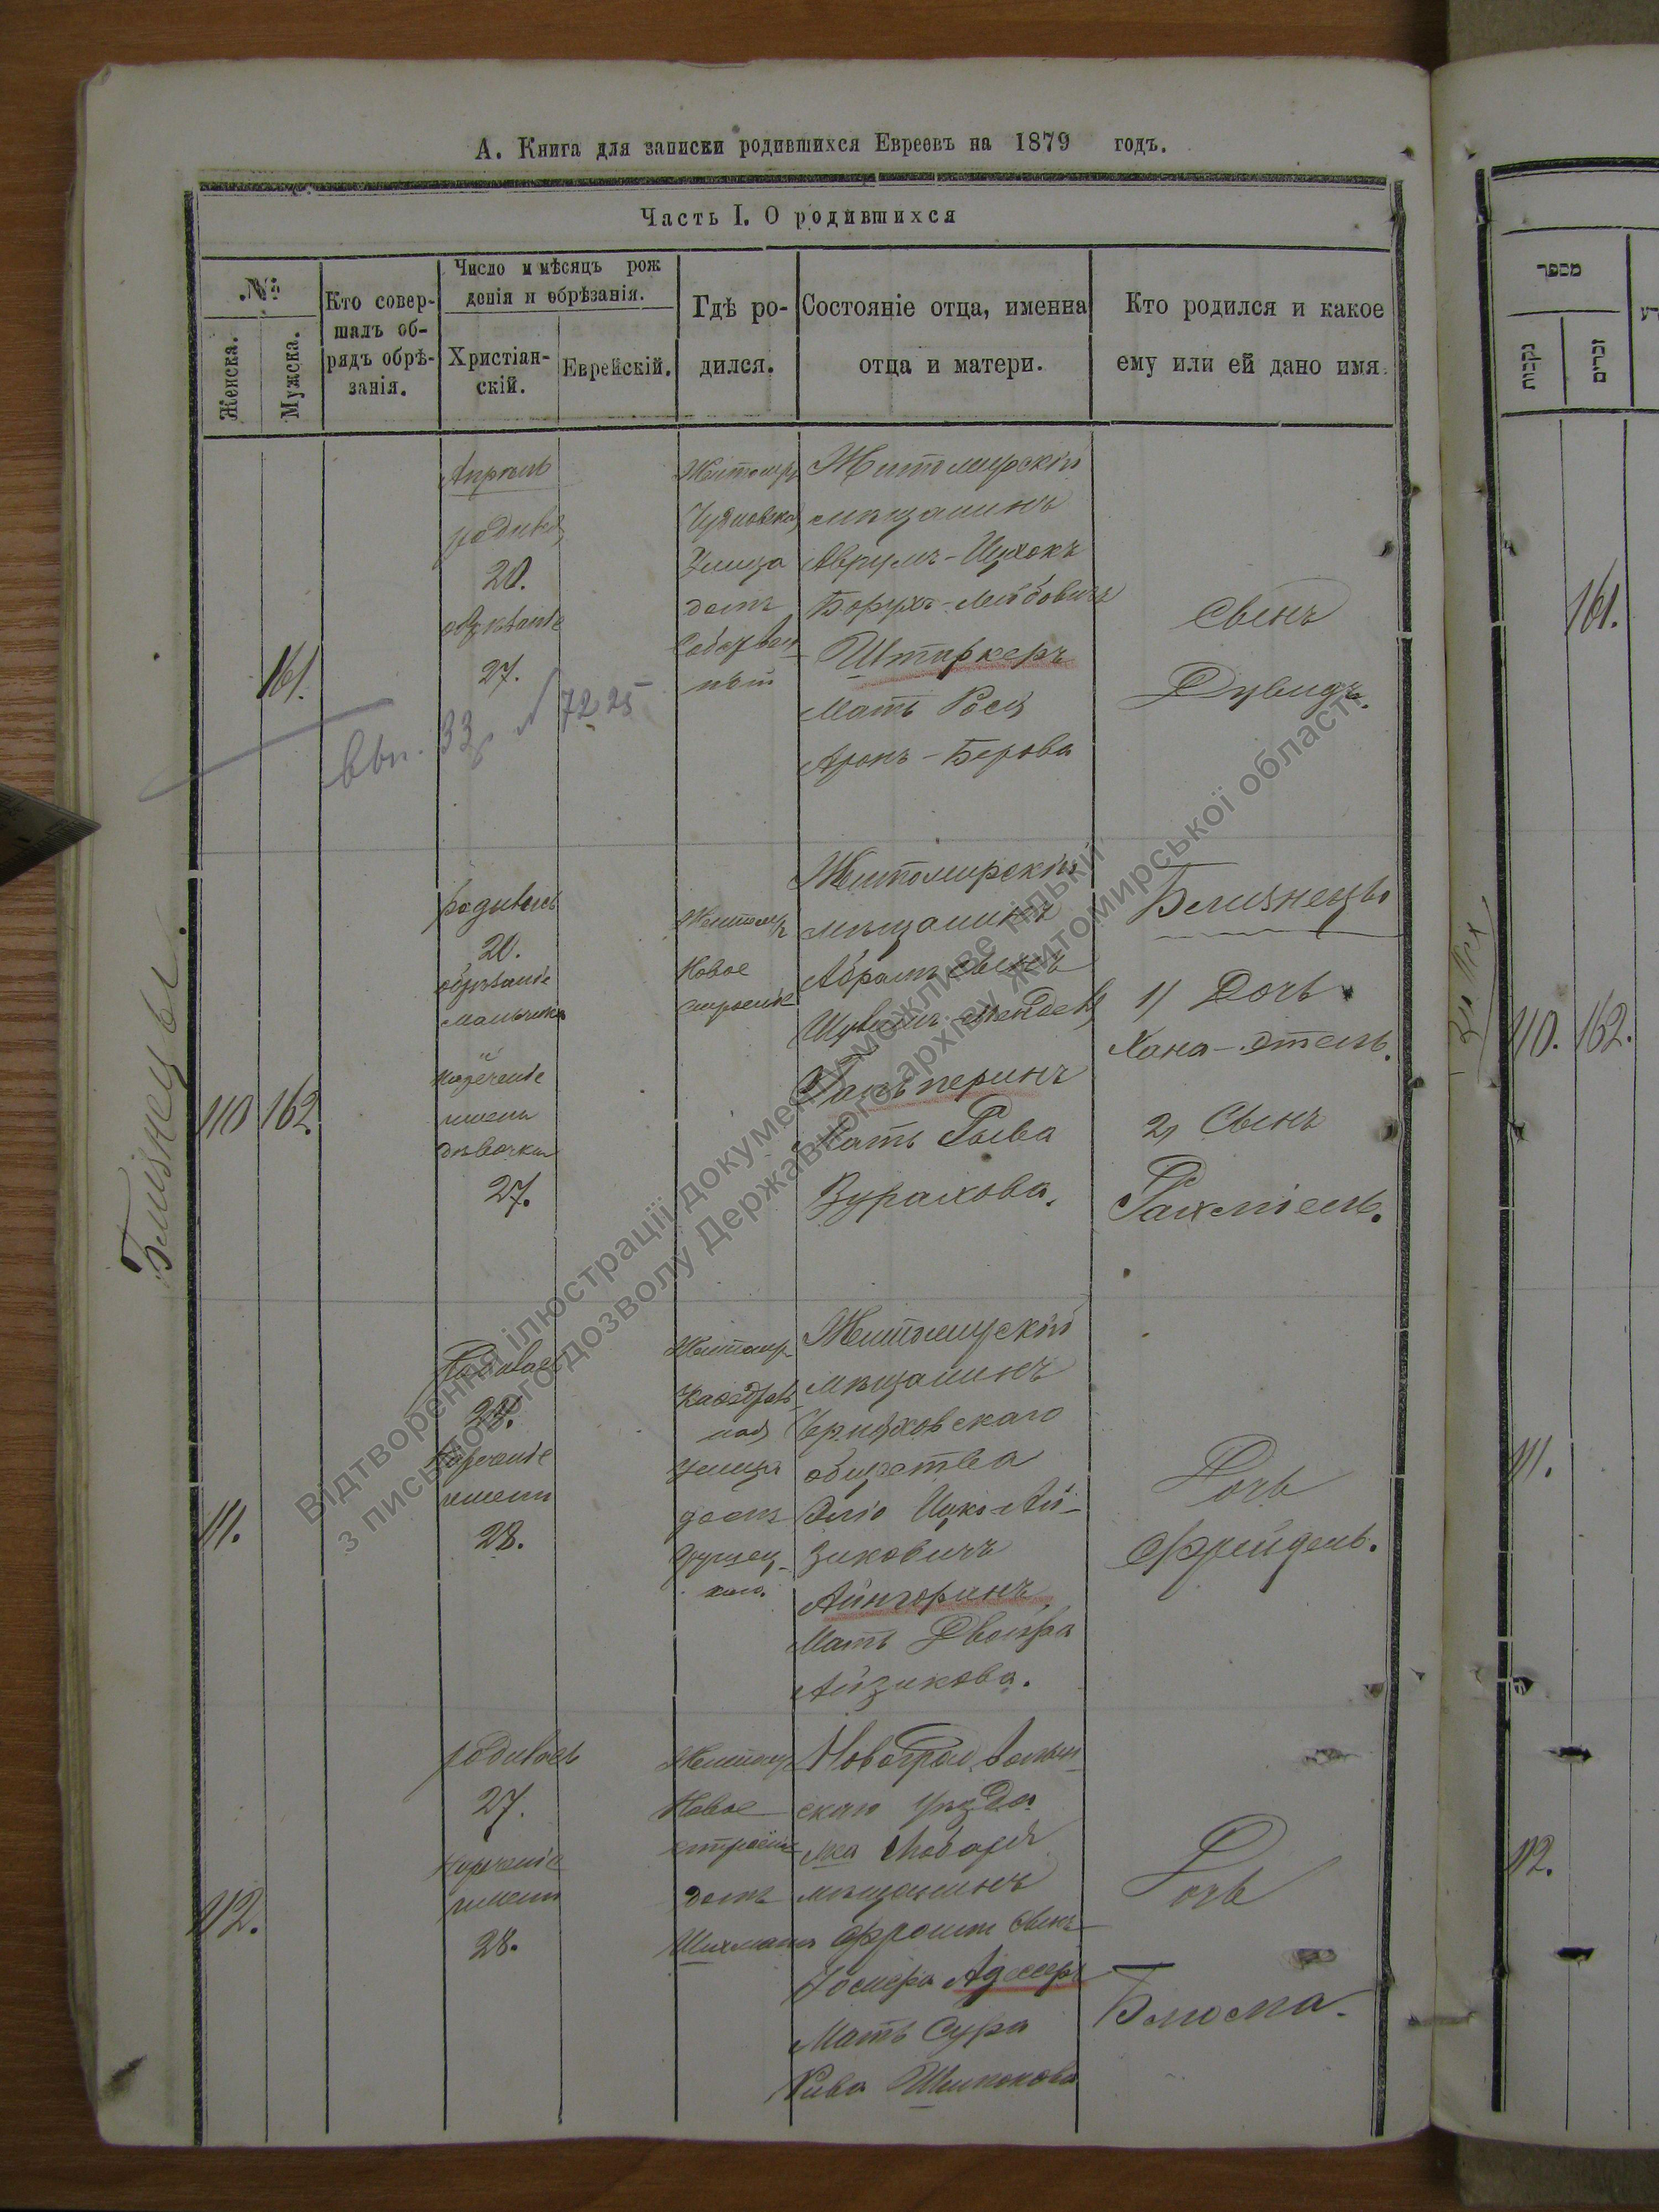 А. Книга для записки родившихся Евреевъ на 1879 годъ.
Часть I. О родившихся
№
Женска.
Мужска.
Кто совер-
шалъ об-
рядъ обрѣ-
занія.
Число и мѣсяцъ рож
денія и обрѣзанія.
Христіан-
скій.
Еврейскій.
Гдѣ ро-
дился.
Состояніе отца, именна
отца и матери.
Кто родился и какое
ему или ей дано имя.
161.
Апрѣль
родился
20.
обрѣзаніе
27.
Житомир
Чудновская
Улица
домъ
Житомирскій
мѣщанинъ
Аврумъ-Ицхокъ
Борухъ-Лейбовичъ
Штаркеръ
Мать Рося
Аронъ-Берова
Сынъ
Дувидъ.
№ 7225
Близнецы.
110
162.
родились
20.
обрѣзаніе
мальчика
и
нареченіе
имени
дѣвочки
27.
Житомир
Новое
строеніе
Житомирскій
мѣщанинъ
Абрамъ сынъ
Гальперинъ
Мать Рыва
Зурахова.
Близнецы
1) Дочь
Хана-Этель.
2) Сынъ
Рахміель.
111.
Родилась
20.
Нареченіе
имени
28.
Житомир
Кафедраль-
ная
Улица
домъ
Житомирскій
мѣщанинъ
Черняховскаго
общества
Эліо Ицко-Ай-
зиковичъ
Айнгоринъ.
Мать Двойра
Айзикова.
Дочь
Фрейдель.
112.
родилась
27.
Нареченіе
имени
28.
Житомир
Новое
строеніе
домъ
Шихмана
Новоград Волын-
скаго уѣзда
м-ка Любаря
мѣщанинъ
Фроим сынъ
Мать Сура
Рива
Дочь
Блюма.
מספר
נקבות
זכרים
161.
110. 162.
111.
112.
Відтворення ілюстрації документу можливе тільки
з письмового дозволу Державного архіву Житомирської області